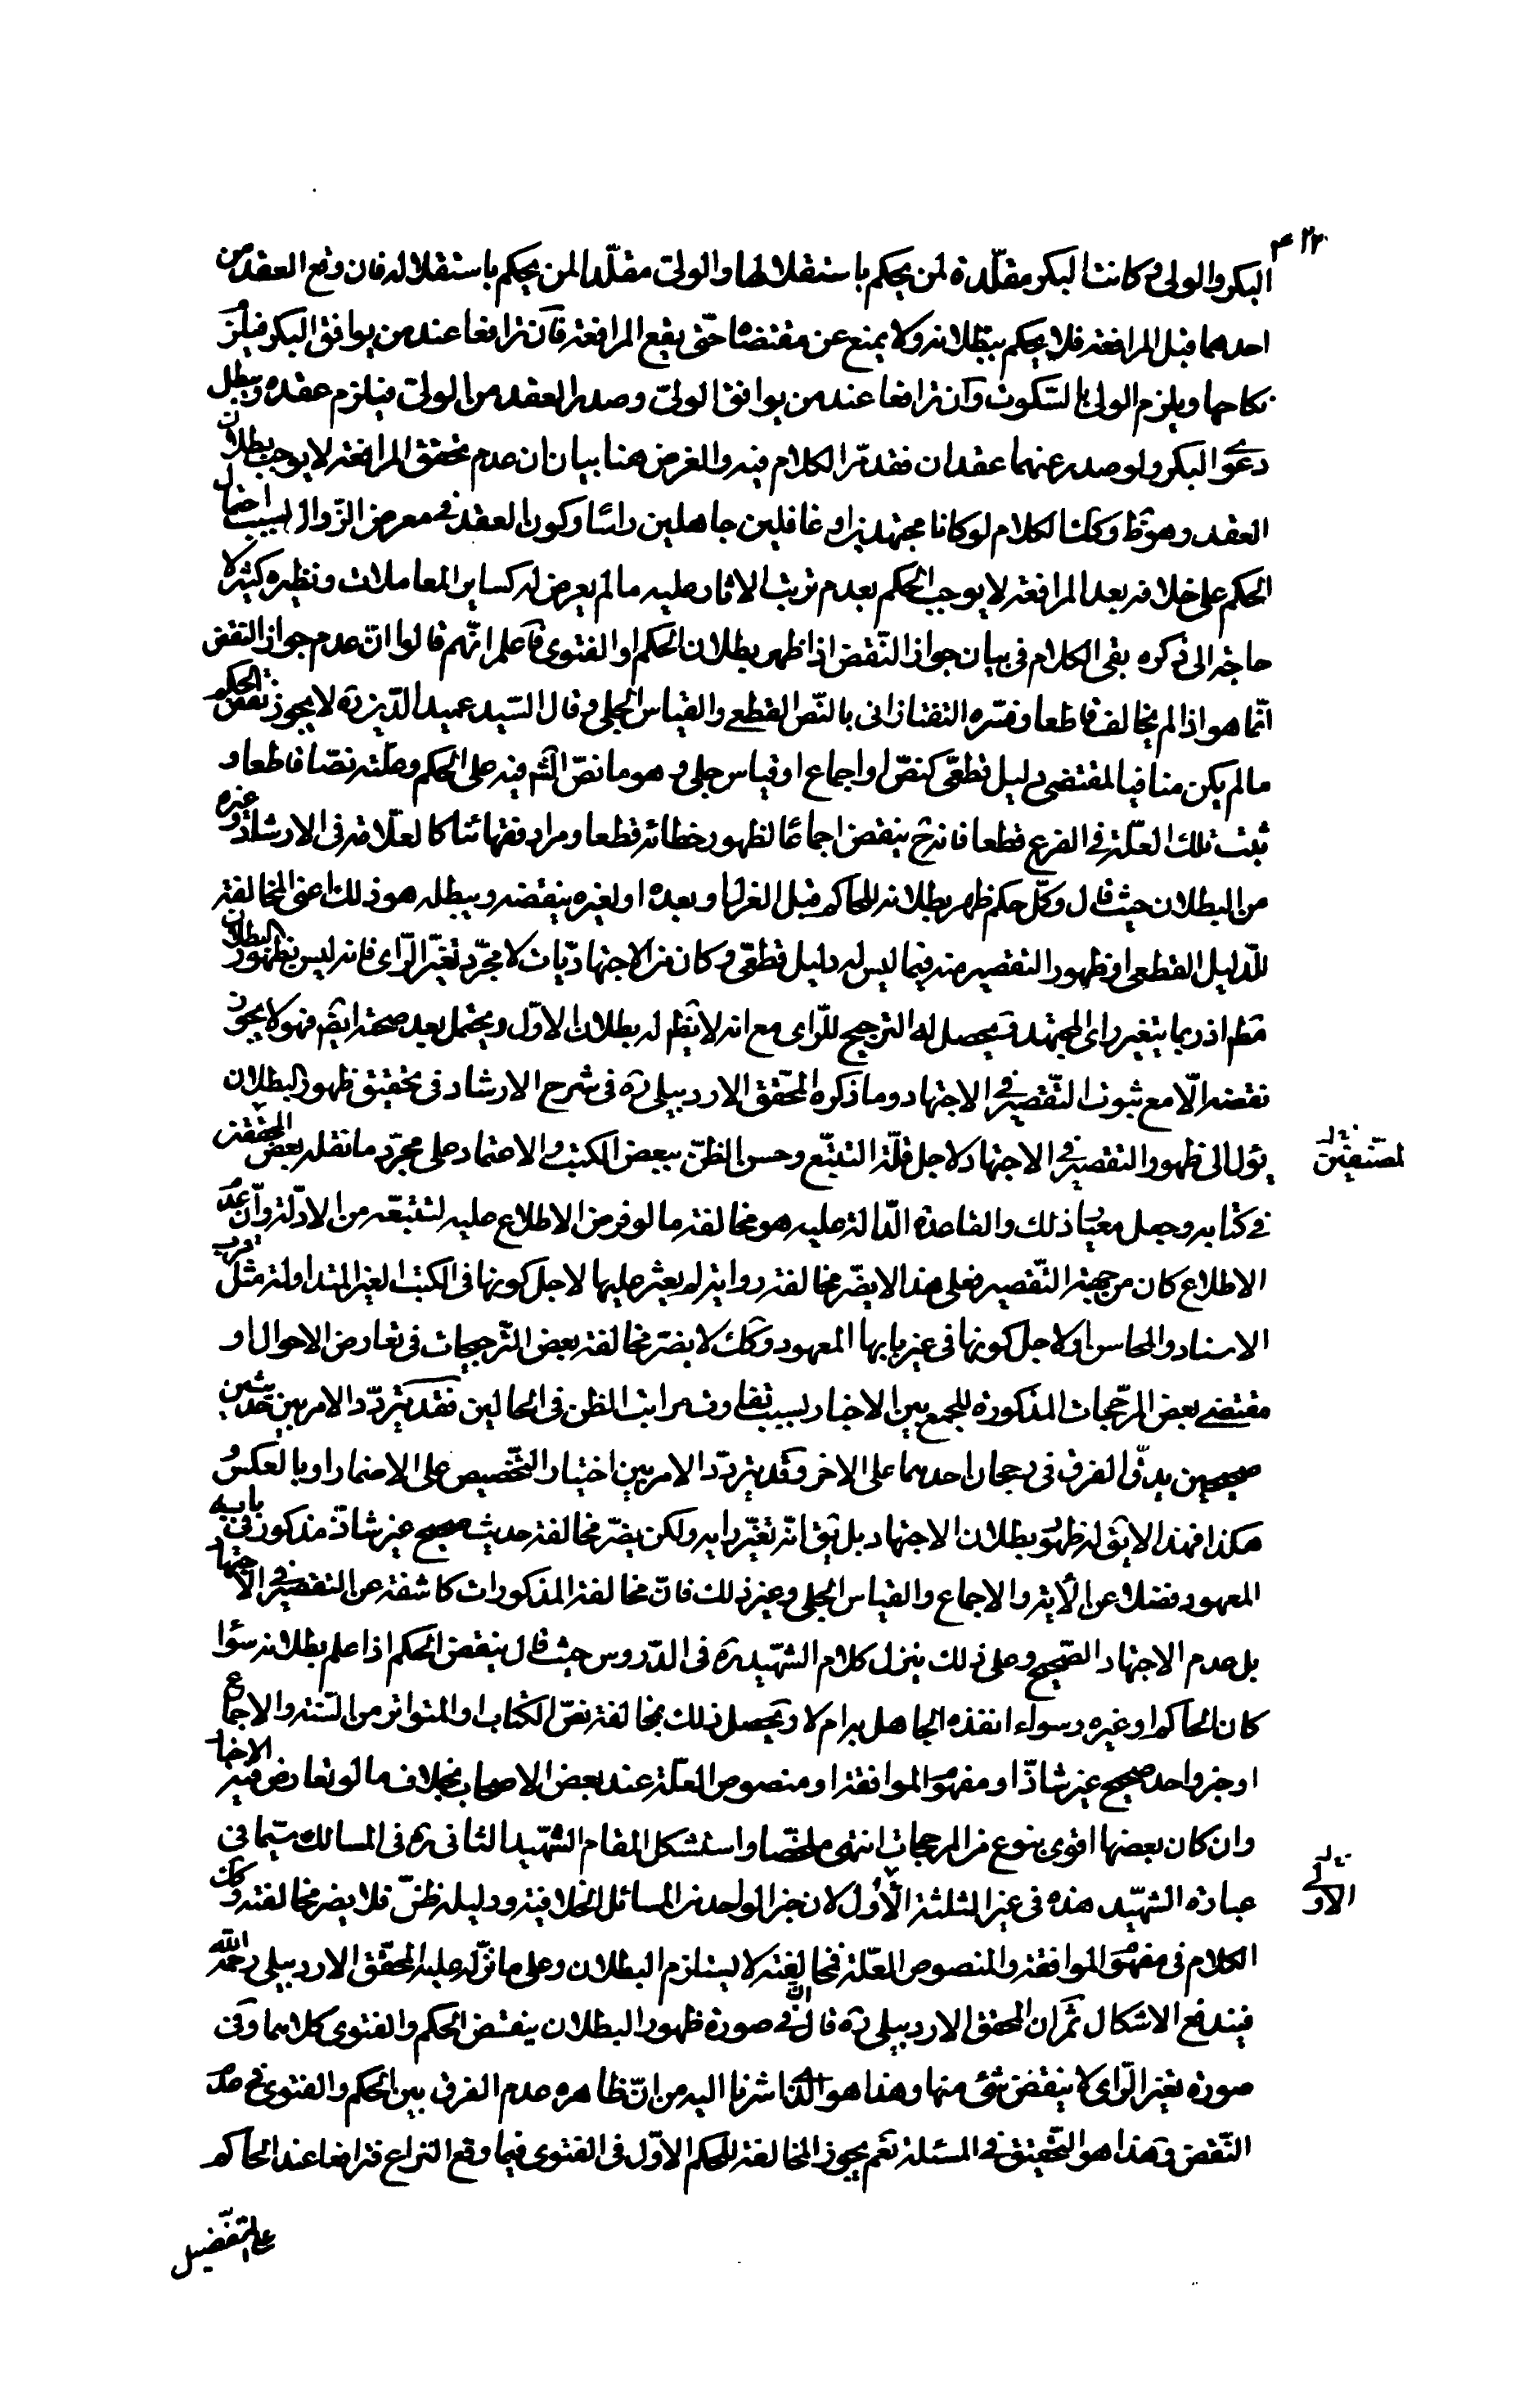 ٤٢٢
البكر والولي وكانت البكر مقلّدة لمن يحكم باستقلالها والولي مقلّدا لمن يحكم باستقلاله فان وقع العقد من
احدهما قبل المرافعة فلا يحكم ببطلانه ولا يمنع عن مقتضاه حتّى يقع المرافعة فان ترافعا عند من يوافق البكر فيلزم
نكاحها ويلزم الولي بالسّكوت وان ترافعا عند من يوافق الولي وصدر العقد من الولي فيلزم عقده ويبطل
دعوى البكر ولو صدر عنهما عقدان فقد مرّ الكلام فيه والغرض هنا بيان ان عدم تحقق المرافعة لا يوجب بطلان
العقد وهو ظ وكذا الكلام لو كانا مجتهدين او غافلين جاهلين راسا وكون العقد في معرض الزّوال بسبب احتمال
الحكم على خلافه بعد المرافعة لا يوجب الحكم بعدم ترتب الاثار عليه ما لم يعرض له كساير المعاملات ونظيره كثير لا
حاجة الى ذكره بقى الكلام في بيان جواز النّقض اذا ظهر بطلان الحكم او الفتوى فاعلم انّهم قالوا انّ عدم جواز النقض
انّما هو اذا لم يخالف قاطعا وفسّره التفتازاني بالنّص القطعي والقياس الجلي وقال السّيد عميد الدّين ره لا يجوز نقض الحكم
ما لم يكن منافيا لمقتضى دليل قطعيّ كنصّ او اجماع او قياس جلي وهو ما نصّ الشّم فيه على الحكم وعلّته نصّا قاطعا و
ثبت تلك العلّة في الفرع قطعا فانه ح ينقض اجماعا لظهور خطائه قطعا ومراد فقهائنا كالعلّامة في الارشاد وغيره
من البطلان حيث قال وكلّ حكم ظهر بطلانه للحاكم قبل العزل او بعده او لغيره ينقضه ويبطله هو ذلك اعنى المخالفة
للدّليل القطعي او ظهور التقصير منه فيما ليس له دليل قطعيّ وكان من الاجتهاديّات لا مجرّد تغيّر الرّاى فانه ليس بظهور البطلان
مطم اذ ربما يتغير راى المجتهد فيحصل له الترجيح للرّاى مع انه لا يظهر له بطلان الاوّل ويحتمل بعد صحته ايضم فهو لا يجوز
نقضه الّا مع ثبوت التّقصير في الاجتهاد وما ذكره المحّقق الاردبيلي ره في شرح الارشاد في تحقيق ظهور البطلان
يئول الى ظهور التقصير في الاجتهاد لاجل قلّة التتبّع وحسن الظنّ ببعض الكتب والاعتماد على مجرّد ما نقله بعض المحققين
لمصنفين
في كتابه وجعل معيار ذلك والقاعدة الدّالة عليه هو مخالفة ما لو فرض الاطلاع عليه لتتبعّه من الادلّة وانّ عدم
الاطلاع كان من جهة التّقصير فعلى هذا لا يضّر مخالفة رواية لم يعثر عليها لاجل كونها في الكتب الغير المتداولة مثل قرب
الاسناد والمحاسن او لاجل كونها في غير بابها المعهود وكك لا يضر مخالفة بعض التّرجيحات في تعارض الاحوال او
مقتضى بعض المرّجحات المذكورة للجمع بين الاخبار بسبب تفاوت مراتب الظن في الحالين فقد يتردّد الامر بين حديثين
صحيحين يدقّ الفرق في رجحان احدهما على الاخر وقد يتردّد الامر بين اختيار التّخصيص على الاضمار او بالعكس و
هكذا فهذا لا يق له ظهور بطلان الاجتهاد بل يق انّه تغيّر رايه ولكن يضّر مخالفة حديث صحيح غير شاذّ مذكور في بابه
المعهود فضلا عن الآية والاجماع والقياس الجلي وغير ذلك فانّ مخالفة المذكورات كاشفة عن التقصير في الاجتهاد
بل عدم الاجتهاد الصّحيح وعلى ذلك ينزل كلام الشّهيد ره في الدّروس حيث قال ينقض الحكم اذا علم بطلانه سواء
كان الحاكم او غيره وسواء انفذه الجاهل به ام لا ويحصل ذلك بمخالفة نصّ الكتاب او المتواتر من السّنة والاجماع
او خبر واحد صحيح غير شاذّ او مفهوم الموافقة او منصوص العلّة عند بعض الاصحاب بخلاف ما لو تعارض فيه الاخبار
وان كان بعضها اقوى بنوع من المرجحات انتهى ملخّصا واستشكل المقام الشّهيد الثاني ره في المسالك سيّما في
عبارة الشّهيد هذه في غير الثلثة الاُول لان خبر الواحد من المسائل الخلافية ودليله ظنّي فلا يضر مخالفته وكك
الاولى
الكلام في مفهوم الموافقة والمنصوص العلّة فمخالفته لا يستلزم البطلان وعلى ما نزّله عليه المحّقق الاردبيلي رحمه الله
فيندفع الاشكال ثم ان المحقق الاردبيلي ره قال انّ في صورة ظهور البطلان ينقض الحكم والفتوى كلاهما وفى
صورة تغير الرّاى لا ينقض شئ منها وهذا هو الذى اشرنا اليه من انّ ظاهره عدم الفرق بين الحكم والفتوى في عدم
النّقض وهذا هو التّحقيق في المسئلة نعم يجوز المخالفة للحكم الاوّل في الفتوى فيما وقع النزاع فترافعا عند الحاكم
على التفضيل